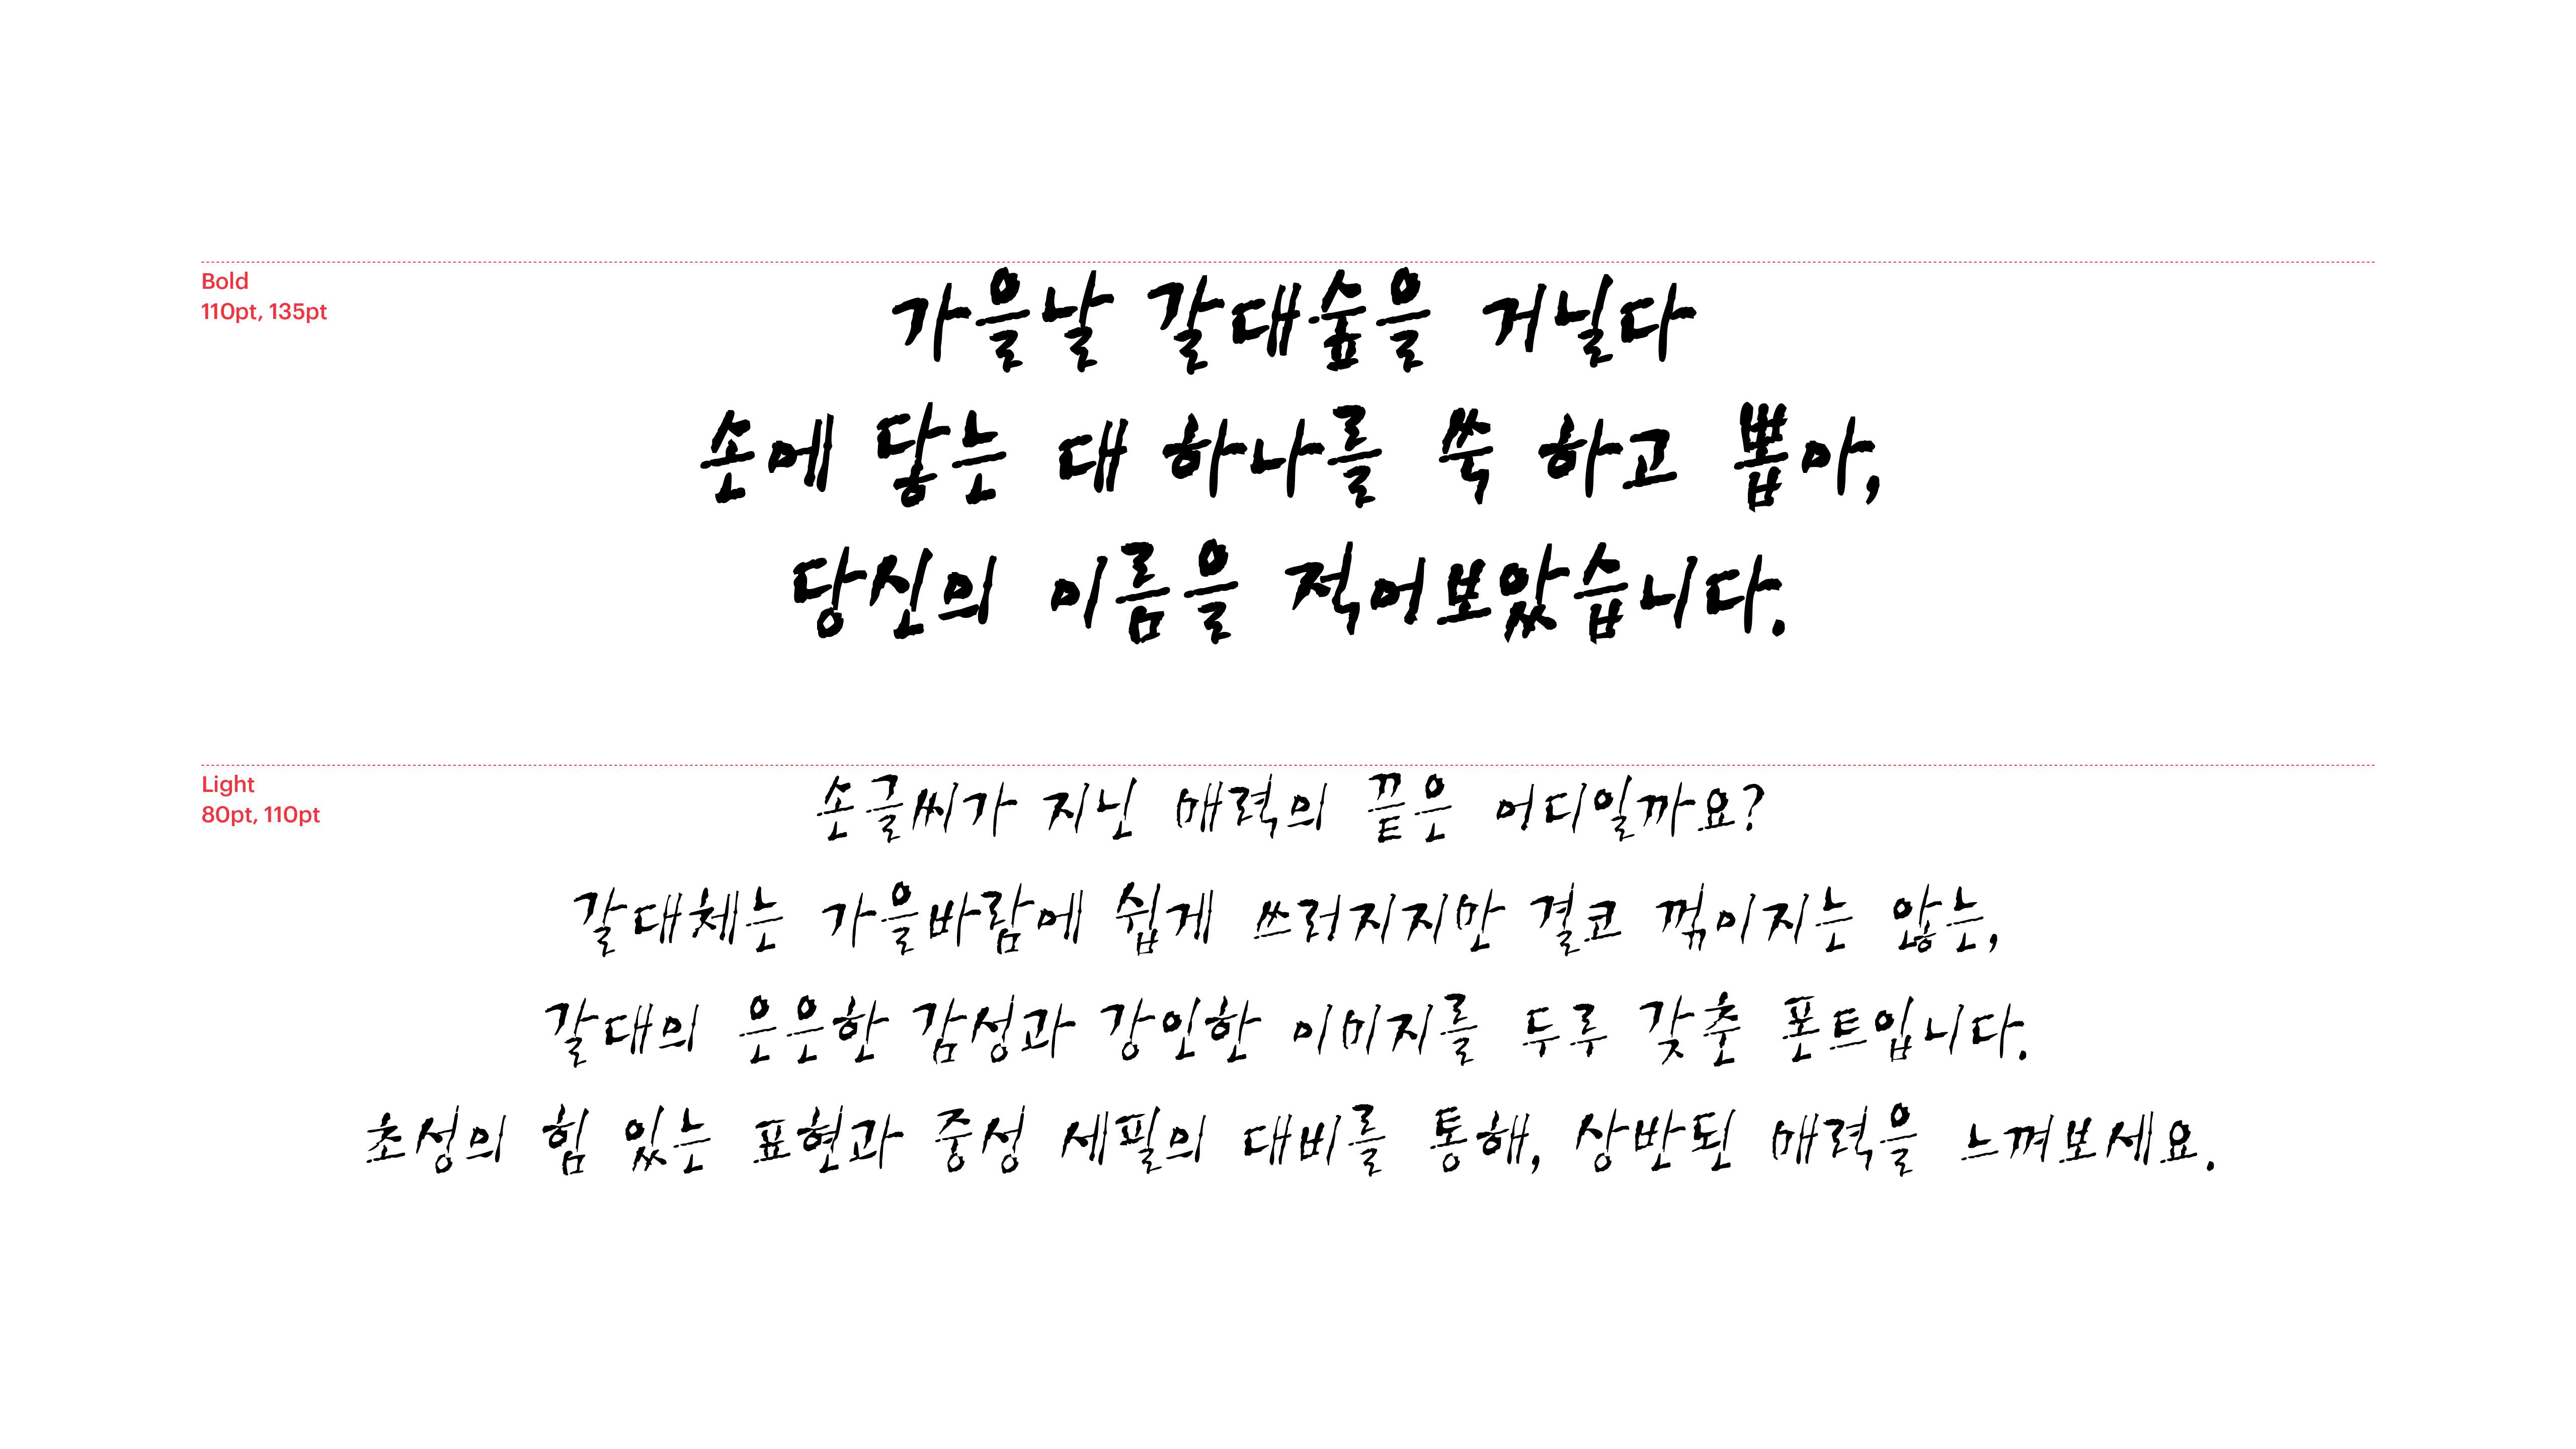 Bold
110pt, 135pt
가을날 갈대숲을 거닐다
손에 닿는 대 하나를 쑥 하고 뽑아,
당신의 이름을 적어보았습니다.
Light
80pt, 110pt
손글씨가 지닌 매력의 끝은 어디일까요?
갈대체는 가을바람에 쉽게 쓰러지지만 결코 꺾이지는 않는,
갈대의 은은한 감성과 강인한 이미지를 두루 갖춘 폰트입니다.
초성의 힘 있는 표현과 중성 세필의 대비를 통해, 상반된 매력을 느껴보세요.